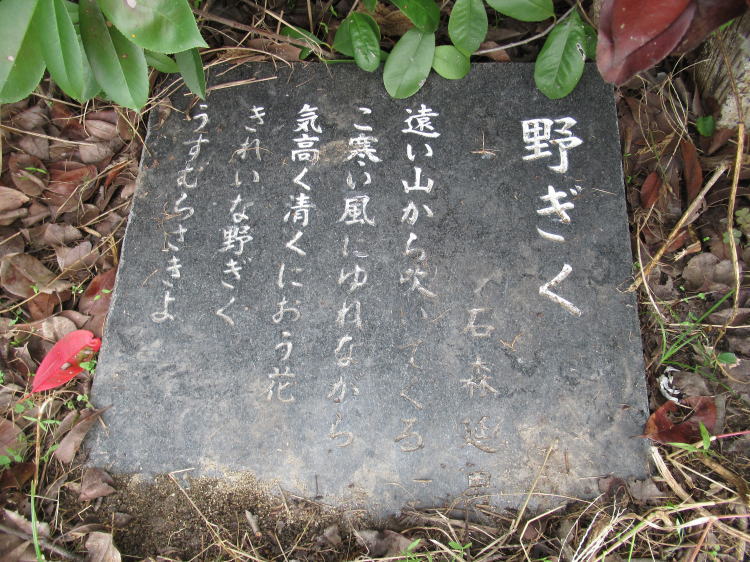 野ぎく
石森延男
遠い山から吹いてくる
こ寒い風にゆれながら
気高く清くにおう花
きれいな野ぎく
うすむらさきよ